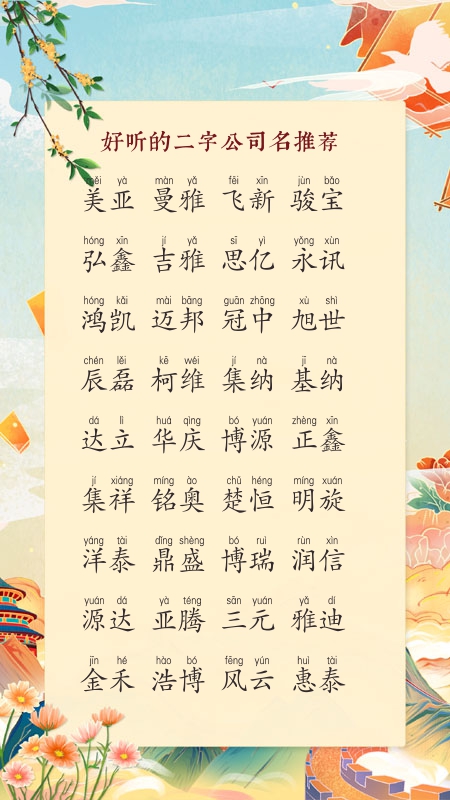 好听的二字公司名推荐
měi yà màn yǎ fēi xīn jùn bǎo
美亚 曼雅 飞新 骏宝
hóng xīn jí yǎ sī yì yǒng xùn
弘鑫 吉雅 思亿 永讯
hóng kǎi mài bāng guān zhōng xù shì
鸿凯 迈邦 冠中 旭世
chén lěi kē wéi jí nà jī nà
辰磊 柯维 集纳 基纳
dá lì huá qìng bó yuán zhèng xīn
达立 华庆 博源 正鑫
jí xiáng míng ào chǔ héng míng xuán
集祥 铭奥 楚恒 明旋
yáng tài dǐng shèng bó ruì rùn xìn
洋泰 鼎盛 博瑞 润信
yuán dá yà téng sān yuán yǎ dí
源达 亚腾 三元 雅迪
jīn hé hào bó fēng yún huì tài
金禾 浩博 风云 惠泰